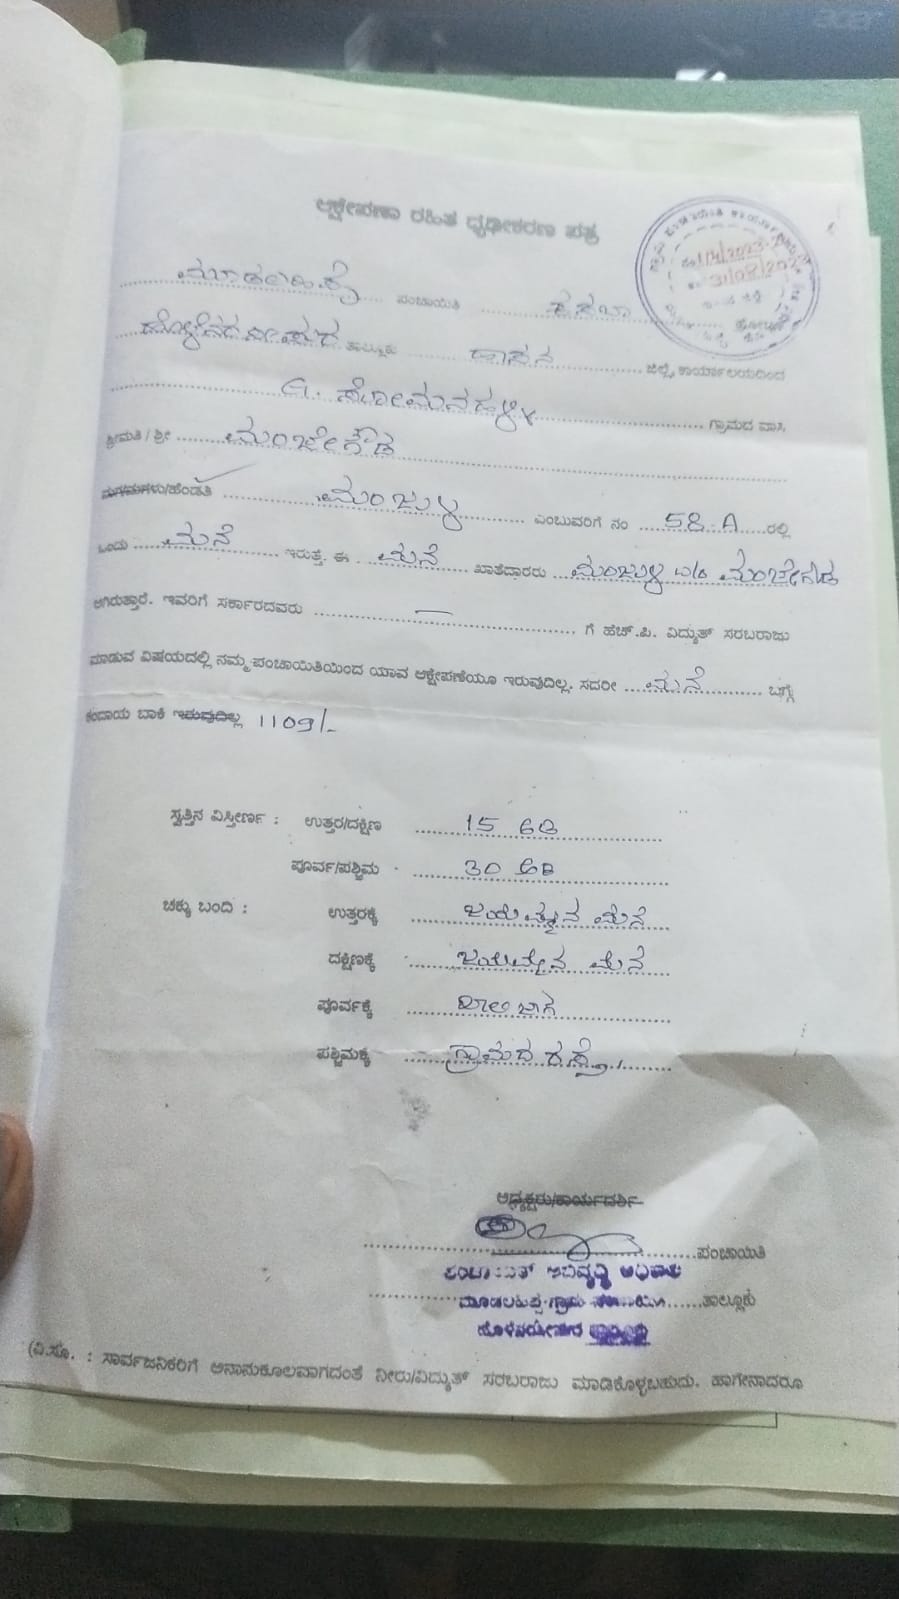 ಆಕ್ಷೇಪಣಾ ರಹಿತ ಧೃಢೀಕರಣ ಪತ್ರ
ಪಂಚಾಯಿತಿ ಕಸಬಾ
ಹೊಳೆನರಸೀಪುರ ತಾಲ್ಲೂಕು ಹಾಸನ ಜಿಲ್ಲೆ, ಕಾರ್ಯಾಲಯದಿಂದ
G. ಸೋಮನಹಳ್ಳಿ ಗ್ರಾಮದ ವಾಸಿ
ಶ್ರೀಮತಿ / ಶ್ರೀ ಮಂಜೇಗೌಡ
ಮಗ/ಮಗಳು/ಹೆಂಡತಿ ಮಂಜುಳ ಎಂಬುವರಿಗೆ ನಂ 58-A ರಲ್ಲಿ
ಒಂದು ಮನೆ ಇರುತ್ತೆ. ಈ ಮನೆ ಖಾತೆದಾರರು ಮಂಜುಳ w/o ಮಂಜೇಗೌಡ
ಆಗಿರುತ್ತಾರೆ. ಇವರಿಗೆ ಸರ್ಕಾರದವರು — ಗೆ ಹೆಚ್.ಪಿ. ವಿದ್ಯುತ್ ಸರಬರಾಜು
ಮಾಡುವ ವಿಷಯದಲ್ಲಿ ನಮ್ಮ ಪಂಚಾಯಿತಿಯಿಂದ ಯಾವ ಆಕ್ಷೇಪಣೆಯೂ ಇರುವುದಿಲ್ಲ. ಸದರೀ ಮನೆ ಬಗ್ಗೆ
ಕಂದಾಯ ಬಾಕಿ ಇರುವುದಿಲ್ಲ 1109/-
ಸ್ವತ್ತಿನ ವಿಸ್ತೀರ್ಣ : ಉತ್ತರ/ದಕ್ಷಿಣ 15 ಅಡಿ
ಪೂರ್ವ/ಪಶ್ಚಿಮ 30 ಅಡಿ
ಚಕ್ಕು ಬಂದಿ : ಉತ್ತರಕ್ಕೆ ಮನೆ
ದಕ್ಷಿಣಕ್ಕೆ ಮನೆ
ಪೂರ್ವಕ್ಕೆ ಖಾಲಿ ಜಾಗ
ಪಶ್ಚಿಮಕ್ಕೆ ಗ್ರಾಮದ ರಸ್ತೆ
ಅಧ್ಯಕ್ಷರು/ಕಾರ್ಯದರ್ಶಿ
ಪಂಚಾಯಿತಿ
ತಾಲ್ಲೂಕು
(ವಿ.ಸೂ. : ಸಾರ್ವಜನಿಕರಿಗೆ ಅನಾನುಕೂಲವಾಗದಂತೆ ನೀರು/ವಿದ್ಯುತ್ ಸರಬರಾಜು ಮಾಡಿಕೊಳ್ಳಬಹುದು. ಹಾಗೇನಾದರೂ